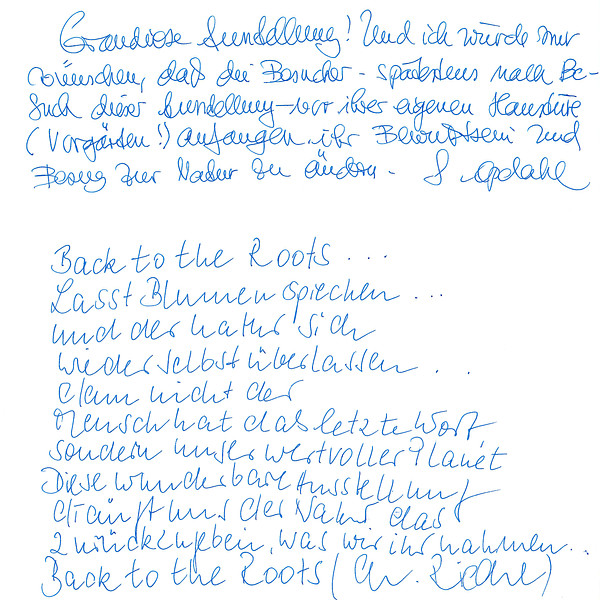 Grandiose Ausstellung! Und ich würde mir
wünschen, daß die Besucher - spätestens nach Be-
such dieser Ausstellung - vor ihrer eigenen Haustüre
(Vorgärten!) anfangen, ihr Bewußtsein und
Bezug zur Natur zu ändern -
Back to the Roots ...
Lasst Blumen sprechen ...
und der natur sich
wieder selbst überlassen ...
denn nicht der
Mensch hat das letzte Wort
sondern unser wertvoller Planet
Diese wunderbare Ausstellung
drängt uns der Natur das
zurückzugeben, was wir ihr nahmen...
Back to the Roots (